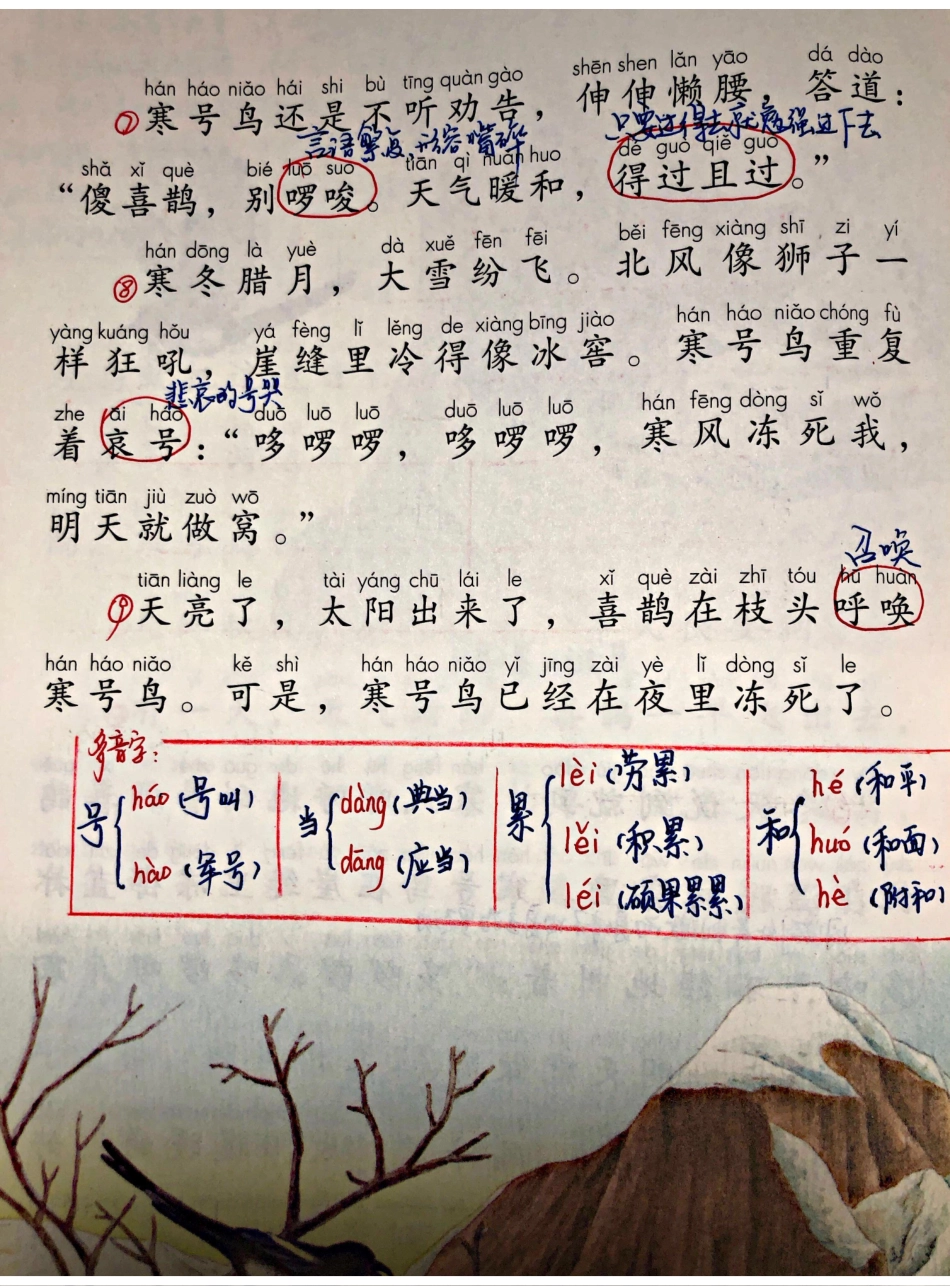 hán háo niǎo hái shi bù tīng quàn gào shēn shen lǎn yāo dá dào
⑦寒号鸟还是不听劝告，伸伸懒腰，答道：
言语繁复，形容嘴碎 只要过得去就勉强过下去
shǎ xǐ què bié luō suo tiān qì nuǎn huo dé guò qiě guò
“傻喜鹊，别啰唆。天气暖和，得过且过。”
hán dōng là yuè dà xuě fēn fēi běi fēng xiàng shī zi yí
⑧寒冬腊月，大雪纷飞。北风像狮子一
yàng kuáng hǒu yá fèng lǐ lěng de xiàng bīng jiào hán háo niǎo chóng fù
样狂吼，崖缝里冷得像冰窖。寒号鸟重复
悲哀的号哭
zhe āi háo duō luō luō duō luō luō hán fēng dòng sǐ wǒ
着哀号：“哆啰啰，哆啰啰，寒风冻死我，
míng tiān jiù zuò wō
明天就做窝。”
召唤
tiān liàng le tài yáng chū lái le xǐ què zài zhī tóu hū huàn
⑨天亮了，太阳出来了，喜鹊在枝头呼唤
hán háo niǎo kě shì hán háo niǎo yǐ jīng zài yè lǐ dòng sǐ le
寒号鸟。可是，寒号鸟已经在夜里冻死了。
多音字：
号 háo（号叫） hào（军号）
当 dàng（典当） dāng（应当）
累 lèi（劳累） lěi（积累） léi（硕果累累）
和 hé（和平） huó（和面） hè（附和）